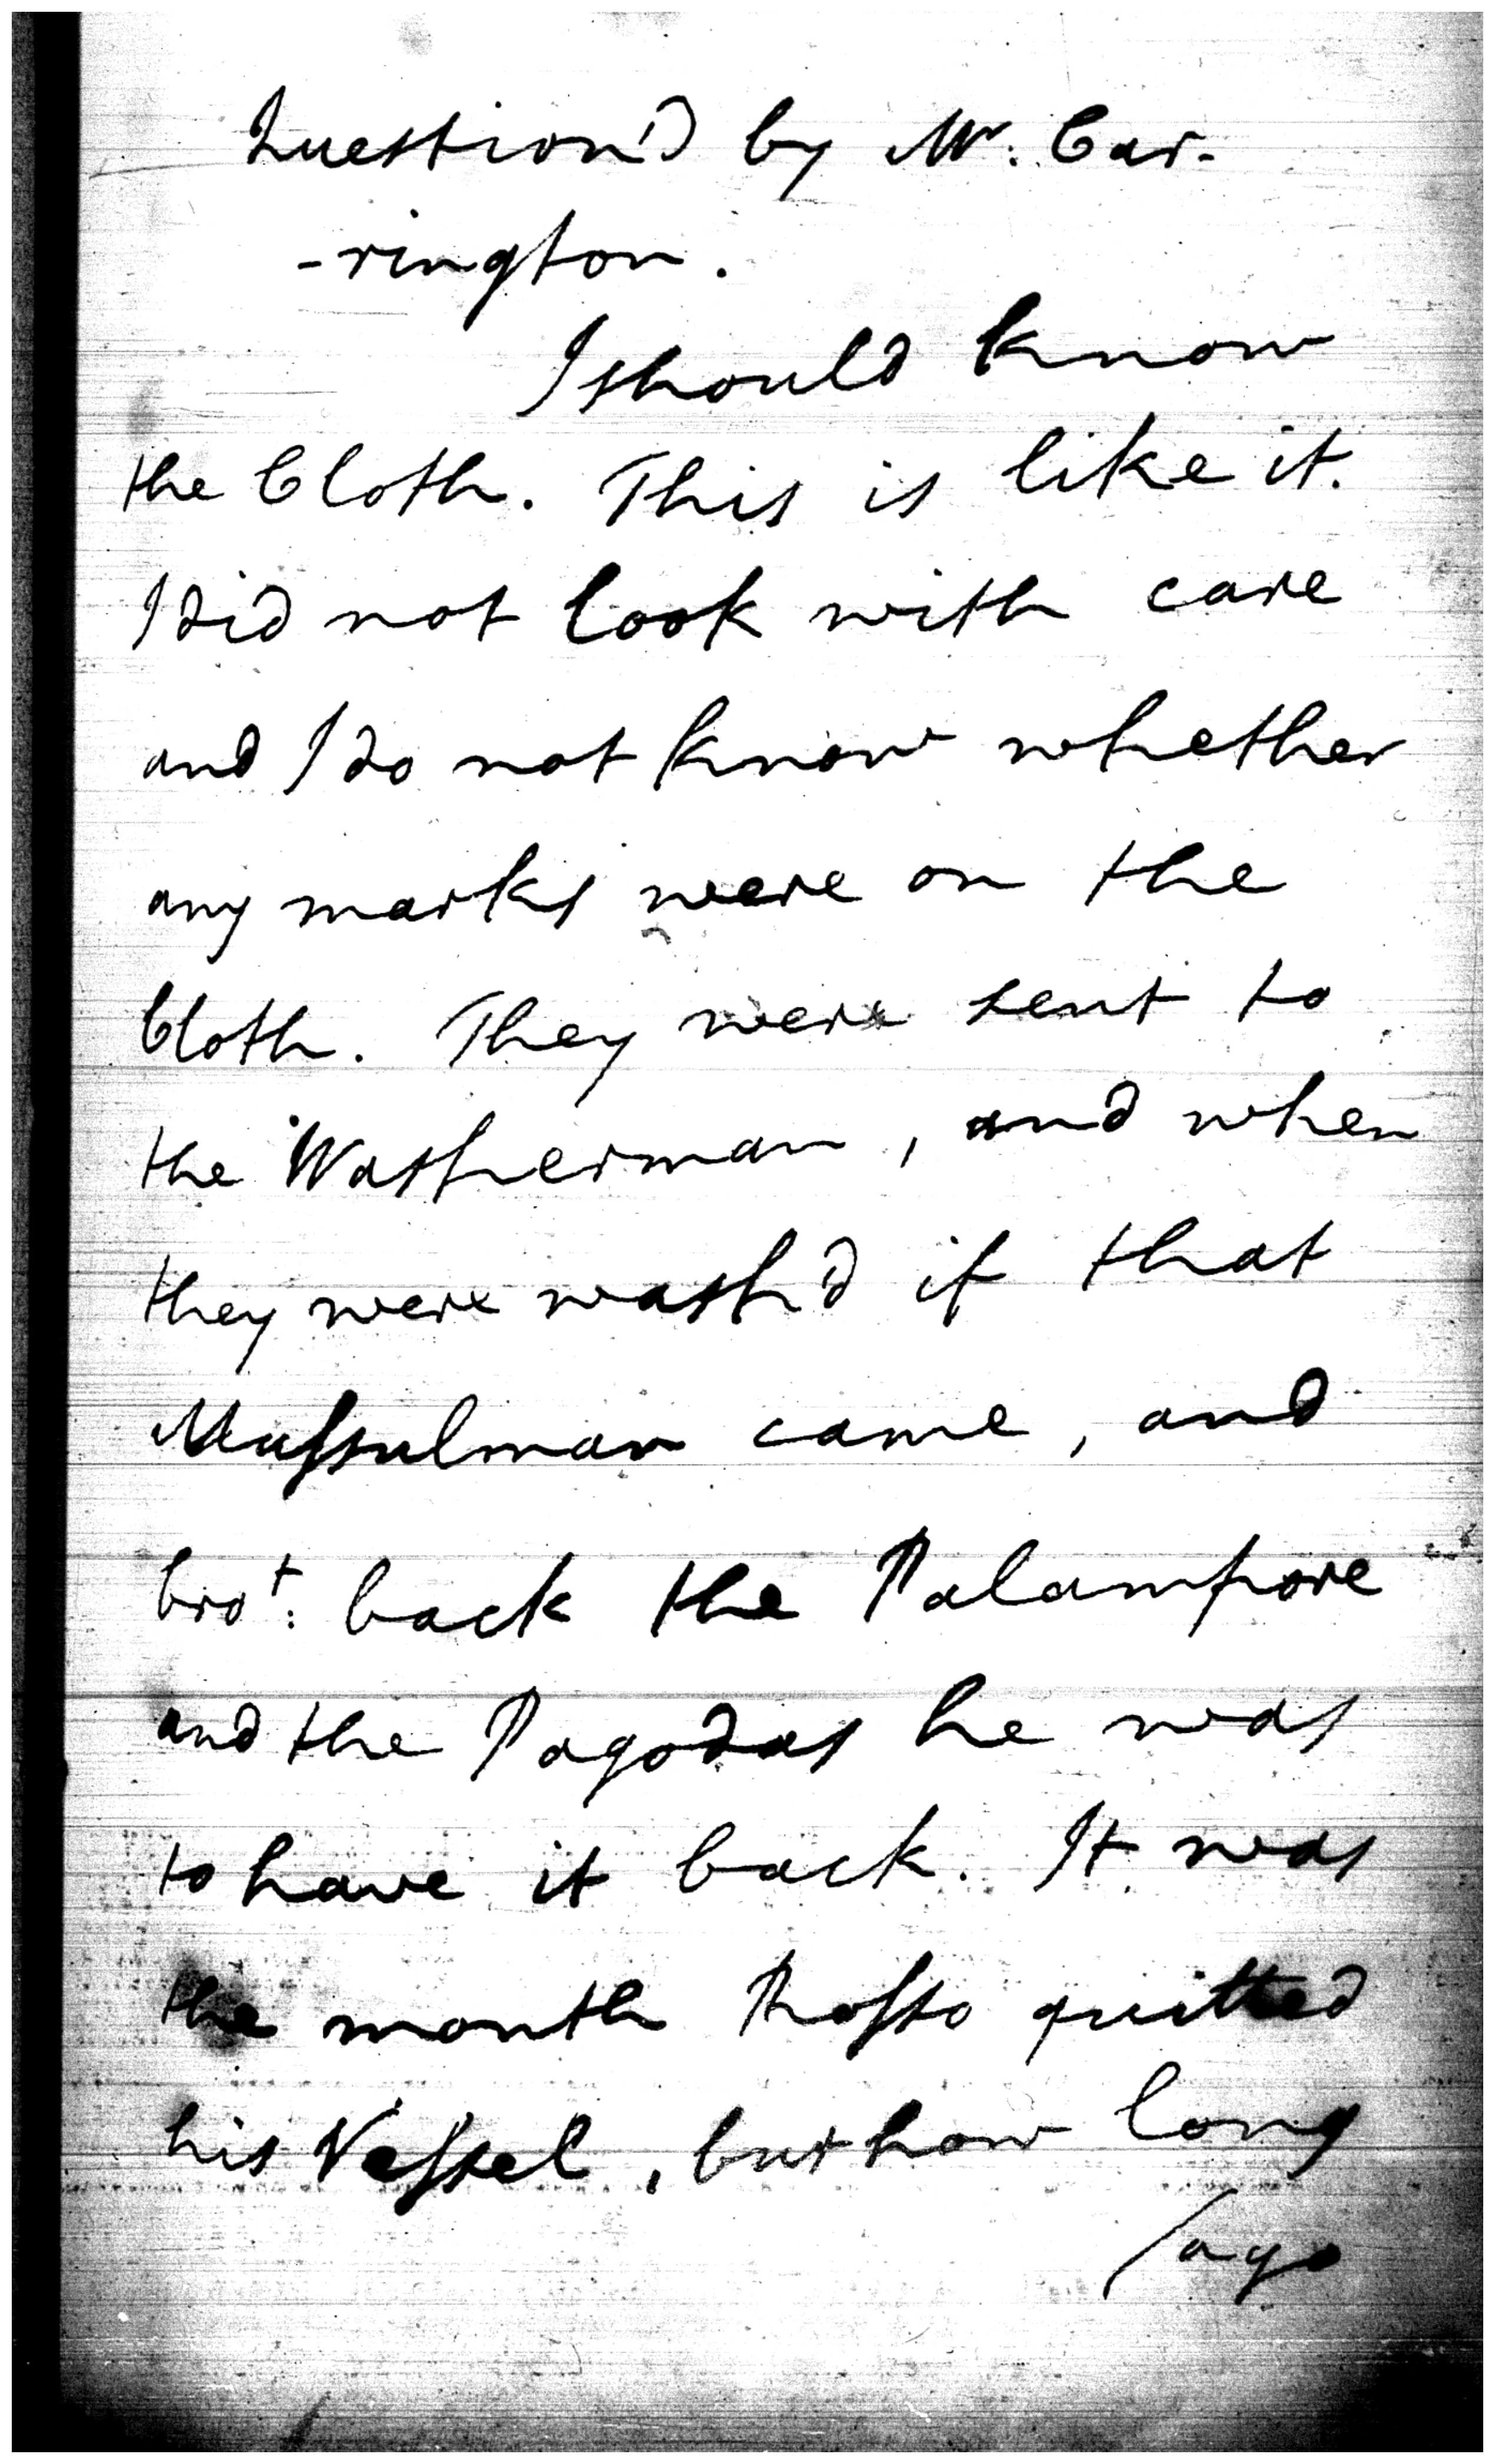 Question'd by Mr. Car-
-rington.
I should know
the Cloth. This is like it.
I did not look with care
and I do not know whether
any marks were on the
Cloth. They were sent to
the Washerman, and when
they were wash'd if that
Mussulman came, and
brot: back the Palampore
and the Pagodas he was
to have it back. It was
the month quitted
his Vessel, but how long
/ago